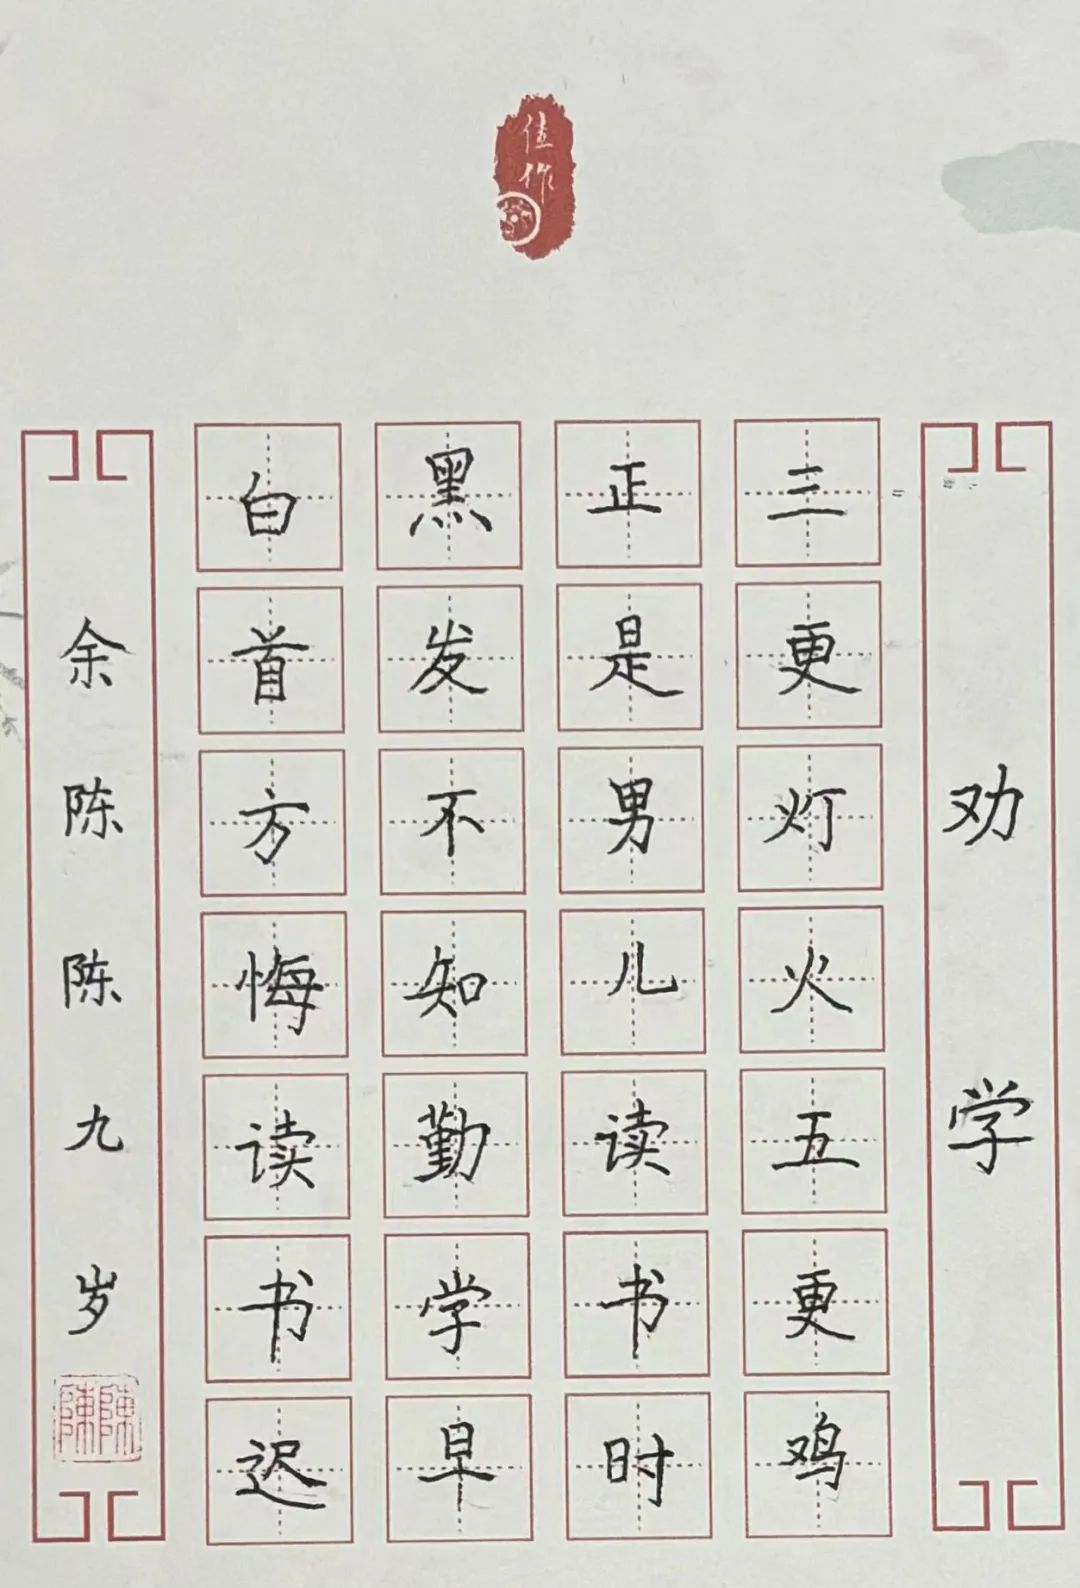 佳作
劝学
三更灯火五更鸡
正是男儿读书时
黑发不知勤学早
白首方悔读书迟
余陈陈九岁
陳陳